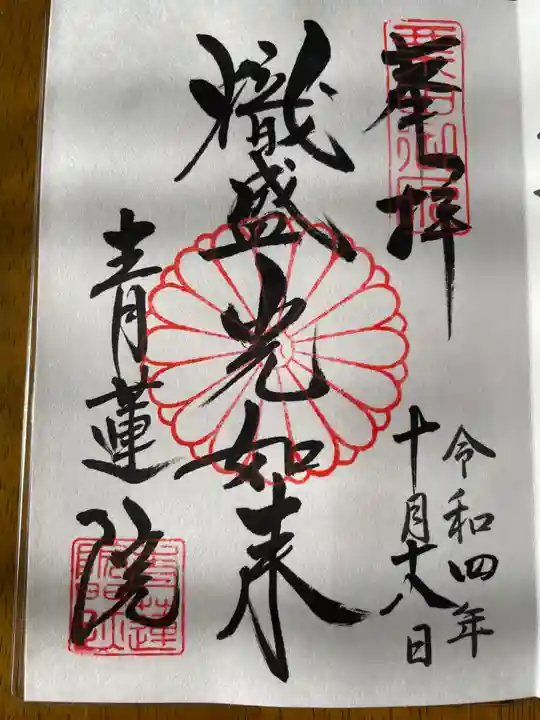 奉拝
令和四年
十月十八日
熾盛光如来
青蓮院